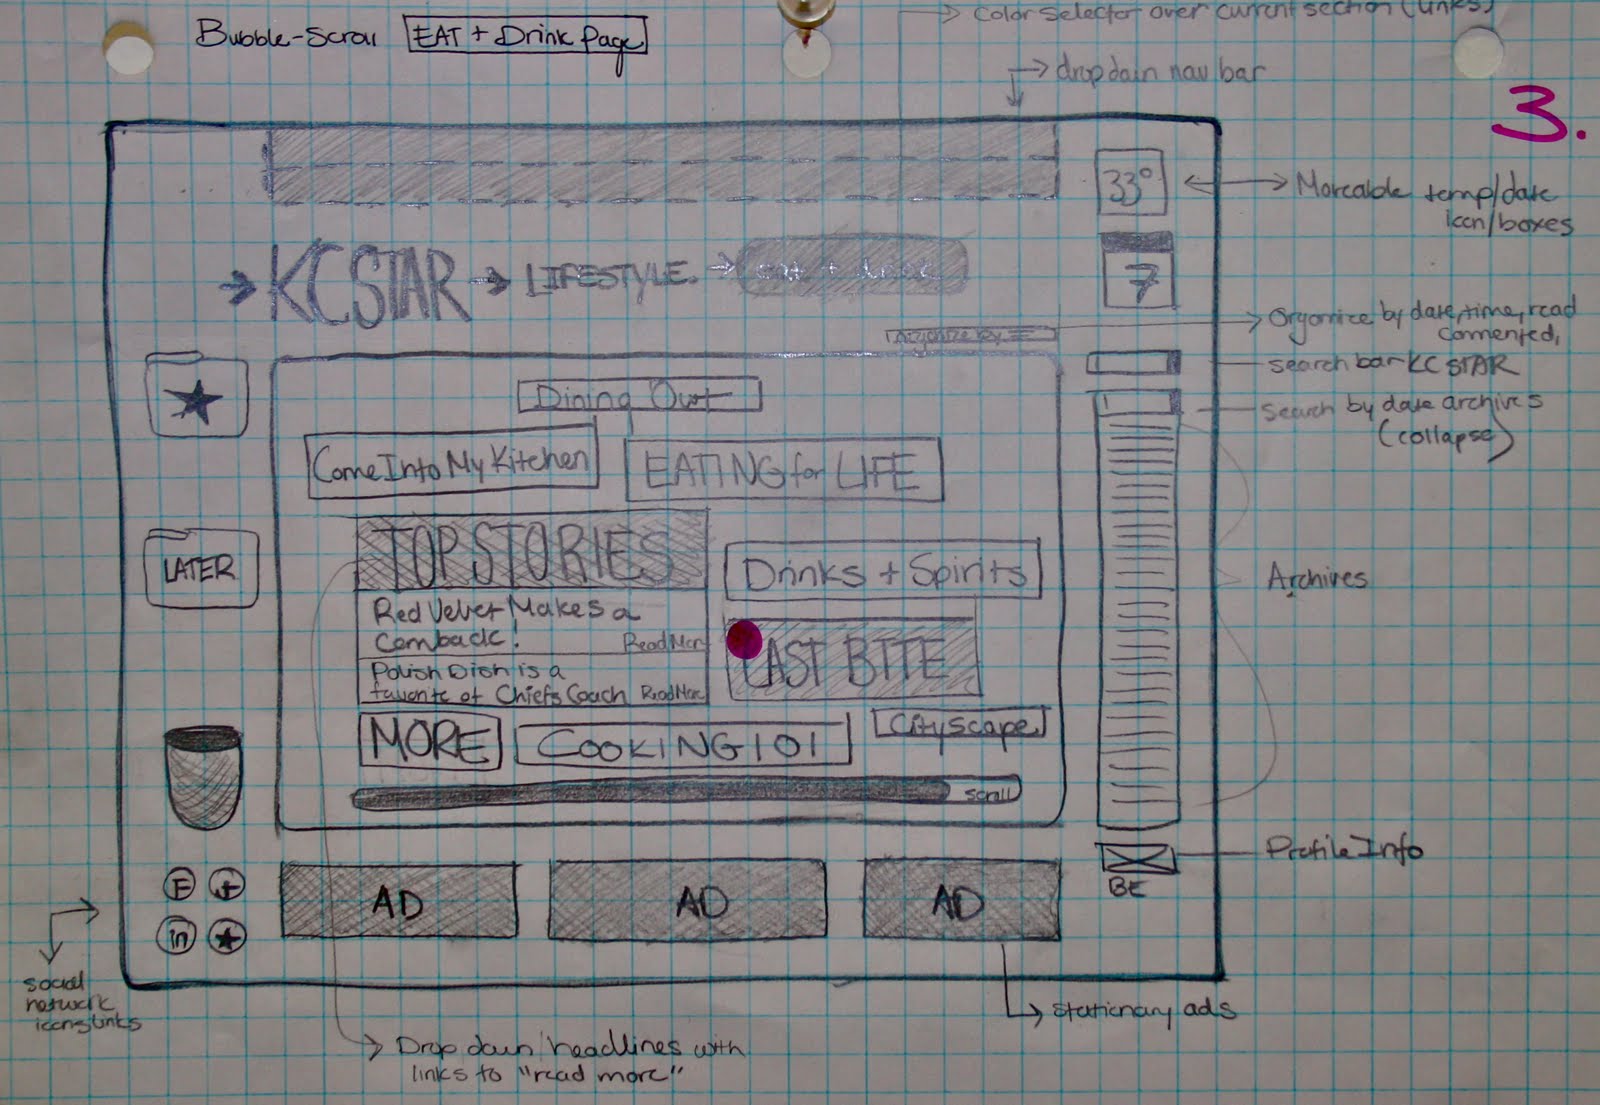 Color Selector over current section (links)
Bubble-Scroll EAT + Drink Page
drop down nav bar
3.
33°
Moveable temp/date
icon/boxes
KC STAR LIFESTYLE. eat + drink
7
Organize by
Organize by date, time, read
commented,
search bar KC STAR
Search by date archives
(collapse)
Dining Out
Come Into My Kitchen
EATING for LIFE
TOP STORIES
LATER
Drinks + Spirits
Archives
Red Velvet Makes a
comback!
Read More
LAST BITE
Polish Dish is a
favorite of Chiefs Coach Read More
MORE
COOKING 101
Cityscape
scroll
Profile Info
BE
F +
in
AD AD AD
social
network
icons links
stationary ads
Drop down/headlines with
links to "read more"